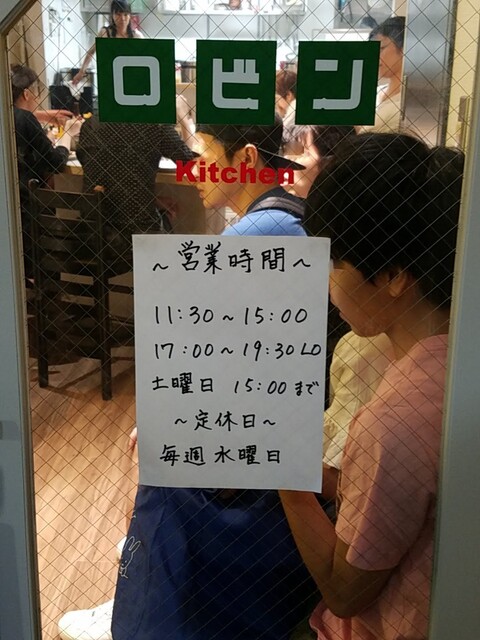 ロビン
Kitchen
～営業時間～
11:30～15:00
17:00～19:30LO
土曜日 15:00まで
～定休日～
毎週水曜日